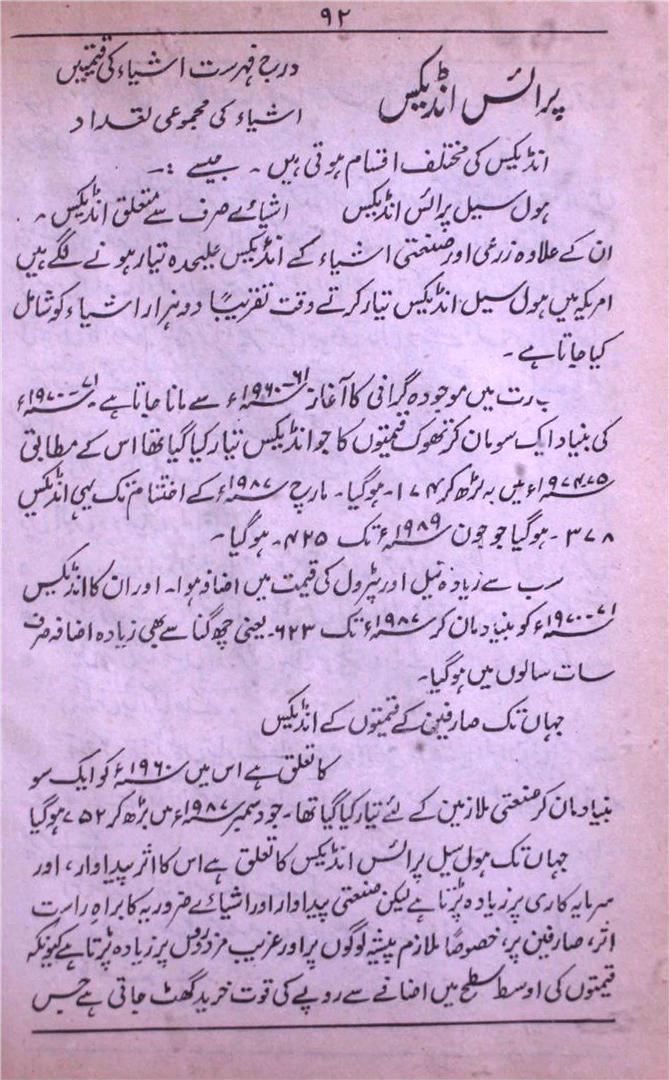 ۹۲
درج فہرست اشیاء کی قیمتیں
پرائس انڈیکس
اشیاء کی مجموعی تعداد
انڈیکس کی مختلف اقسام ہوتی ہیں ۔ جیسے :۔
ہول سیل پرائس انڈیکس اشیائے صرف سے متعلق انڈیکس ۔
ان کے علاوہ زرعی اور صنعتی اشیاء کے انڈیکس علیحدہ تیار ہونے لگے ہیں
امریکہ میں ہول سیل انڈیکس تیار کرتے وقت تقریباً دو ہزار اشیاء کو شامل
کیا جاتا ہے ۔
بھارت میں موجودہ گرانی کا آغاز ۶۱-۱۹۶۰ء سے مانا جاتا ہے ۔ ۷۱-۱۹۷۰ء
کی بنیاد ایک سو مان کر تھوک قیمتوں کا جو انڈیکس تیار کیا گیا تھا اس کے مطابق
۷۵-۱۹۷۴ء میں یہ بڑھ کر ۱۷۴۔ ہوگیا ۔ مارچ ۱۹۸۷ء کے اختتام تک یہی انڈیکس
۳۷۸ ۔ ہوگیا جو جون ۱۹۸۹ء تک ۴۲۵۔ ہوگیا ۔
سب سے زیادہ تیل اور پٹرول کی قیمت میں اضافہ ہوا ۔ اور ان کا انڈیکس
۷۱-۱۹۷۰ء کو بنیاد مان کر ۱۹۸۷ء تک ۶۲۳۔ یعنی چھ گنا سے بھی زیادہ اضافہ صرف
سات سالوں میں ہوگیا ۔
جہاں تک صارفین کے قیمتوں کے انڈیکس
کا تعلق ہے اس میں ۱۹۶۰ء کو ایک سو
بنیاد مان کر صنعتی ملازمین کے لئے تیار کیا گیا تھا ۔ جو دسمبر ۱۹۸۷ء میں بڑھ کر ۷۵۲ ہوگیا
جہاں تک ہول سیل پرائس انڈیکس کا تعلق ہے اس کا اثر پیداوار ، اور
سرمایہ کاری پر زیادہ پڑتا ہے لیکن صنعتی پیداوار اور اشیائے ضروریہ کا براہ راست
اثر، صارفین پر، خصوصاً ملازم پیشہ لوگوں پر اور غریب مزدوروں پر زیادہ پڑتا ہے کیونکہ
قیمتوں کی اوسط سطح میں اضافے سے روپے کی قوت خرید گھٹ جاتی ہے جس